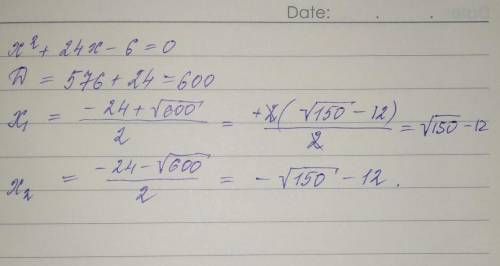 Date: . .
x² + 24x - 6 = 0
D = 576 + 24 = 600
x₁ = (-24 + √600)/2 = +2(√150 - 12)/2 = √150 - 12
x₂ = (-24 - √600)/2 = -√150 - 12.